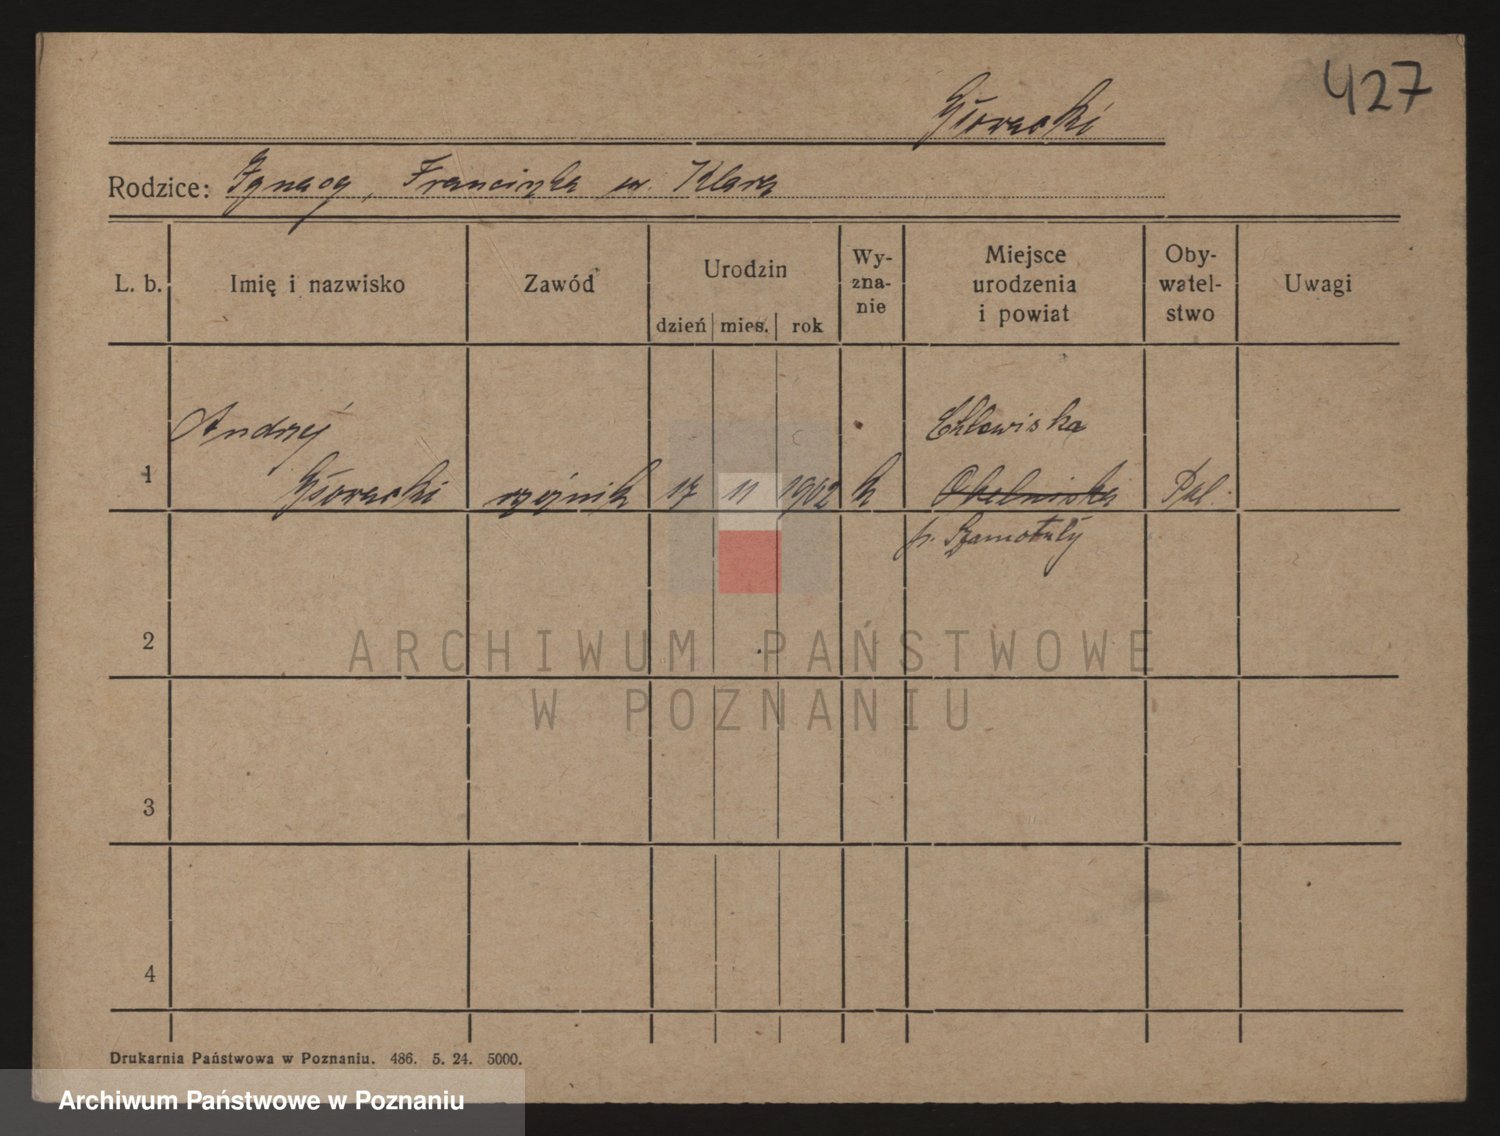 427
Głowacki
Rodzice: Ignacy, Franciszka
L. b. Imię i nazwisko Zawód Urodzin dzień mies. rok Wy-zna-nie Miejsce urodzenia i powiat Oby-watel-stwo Uwagi
Andrzej Chlewiska
1 Głowacki 17 11 1902 k Pol.
p. Szamotuły
2
ARCHIWUM PAŃSTWOWE
W POZNANIU
3
4
Drukarnia Państwowa w Poznaniu. 486. 5. 24. 5000.
Archiwum Państwowe w Poznaniu